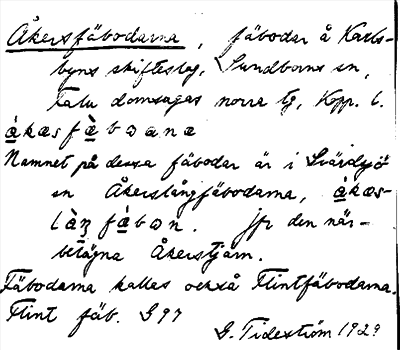 Åkersfäbodarna, fäbodar å Karls-
byns skifteslag, Sundborns sn,
Falu domsagas norra tg, Kopp. l.
àkæsfæ̀bωana
Namnet på dessa fäbodar är i Svärdsjö
sn Åkerslångfäbodarna, àkæs-
làŋfàbωn. Jfr den när-
belägna Åkerstjärn.
Fäbodarna kallas också Flintfäbodarna.
Flint fäb. G97
G. Tideström 1929